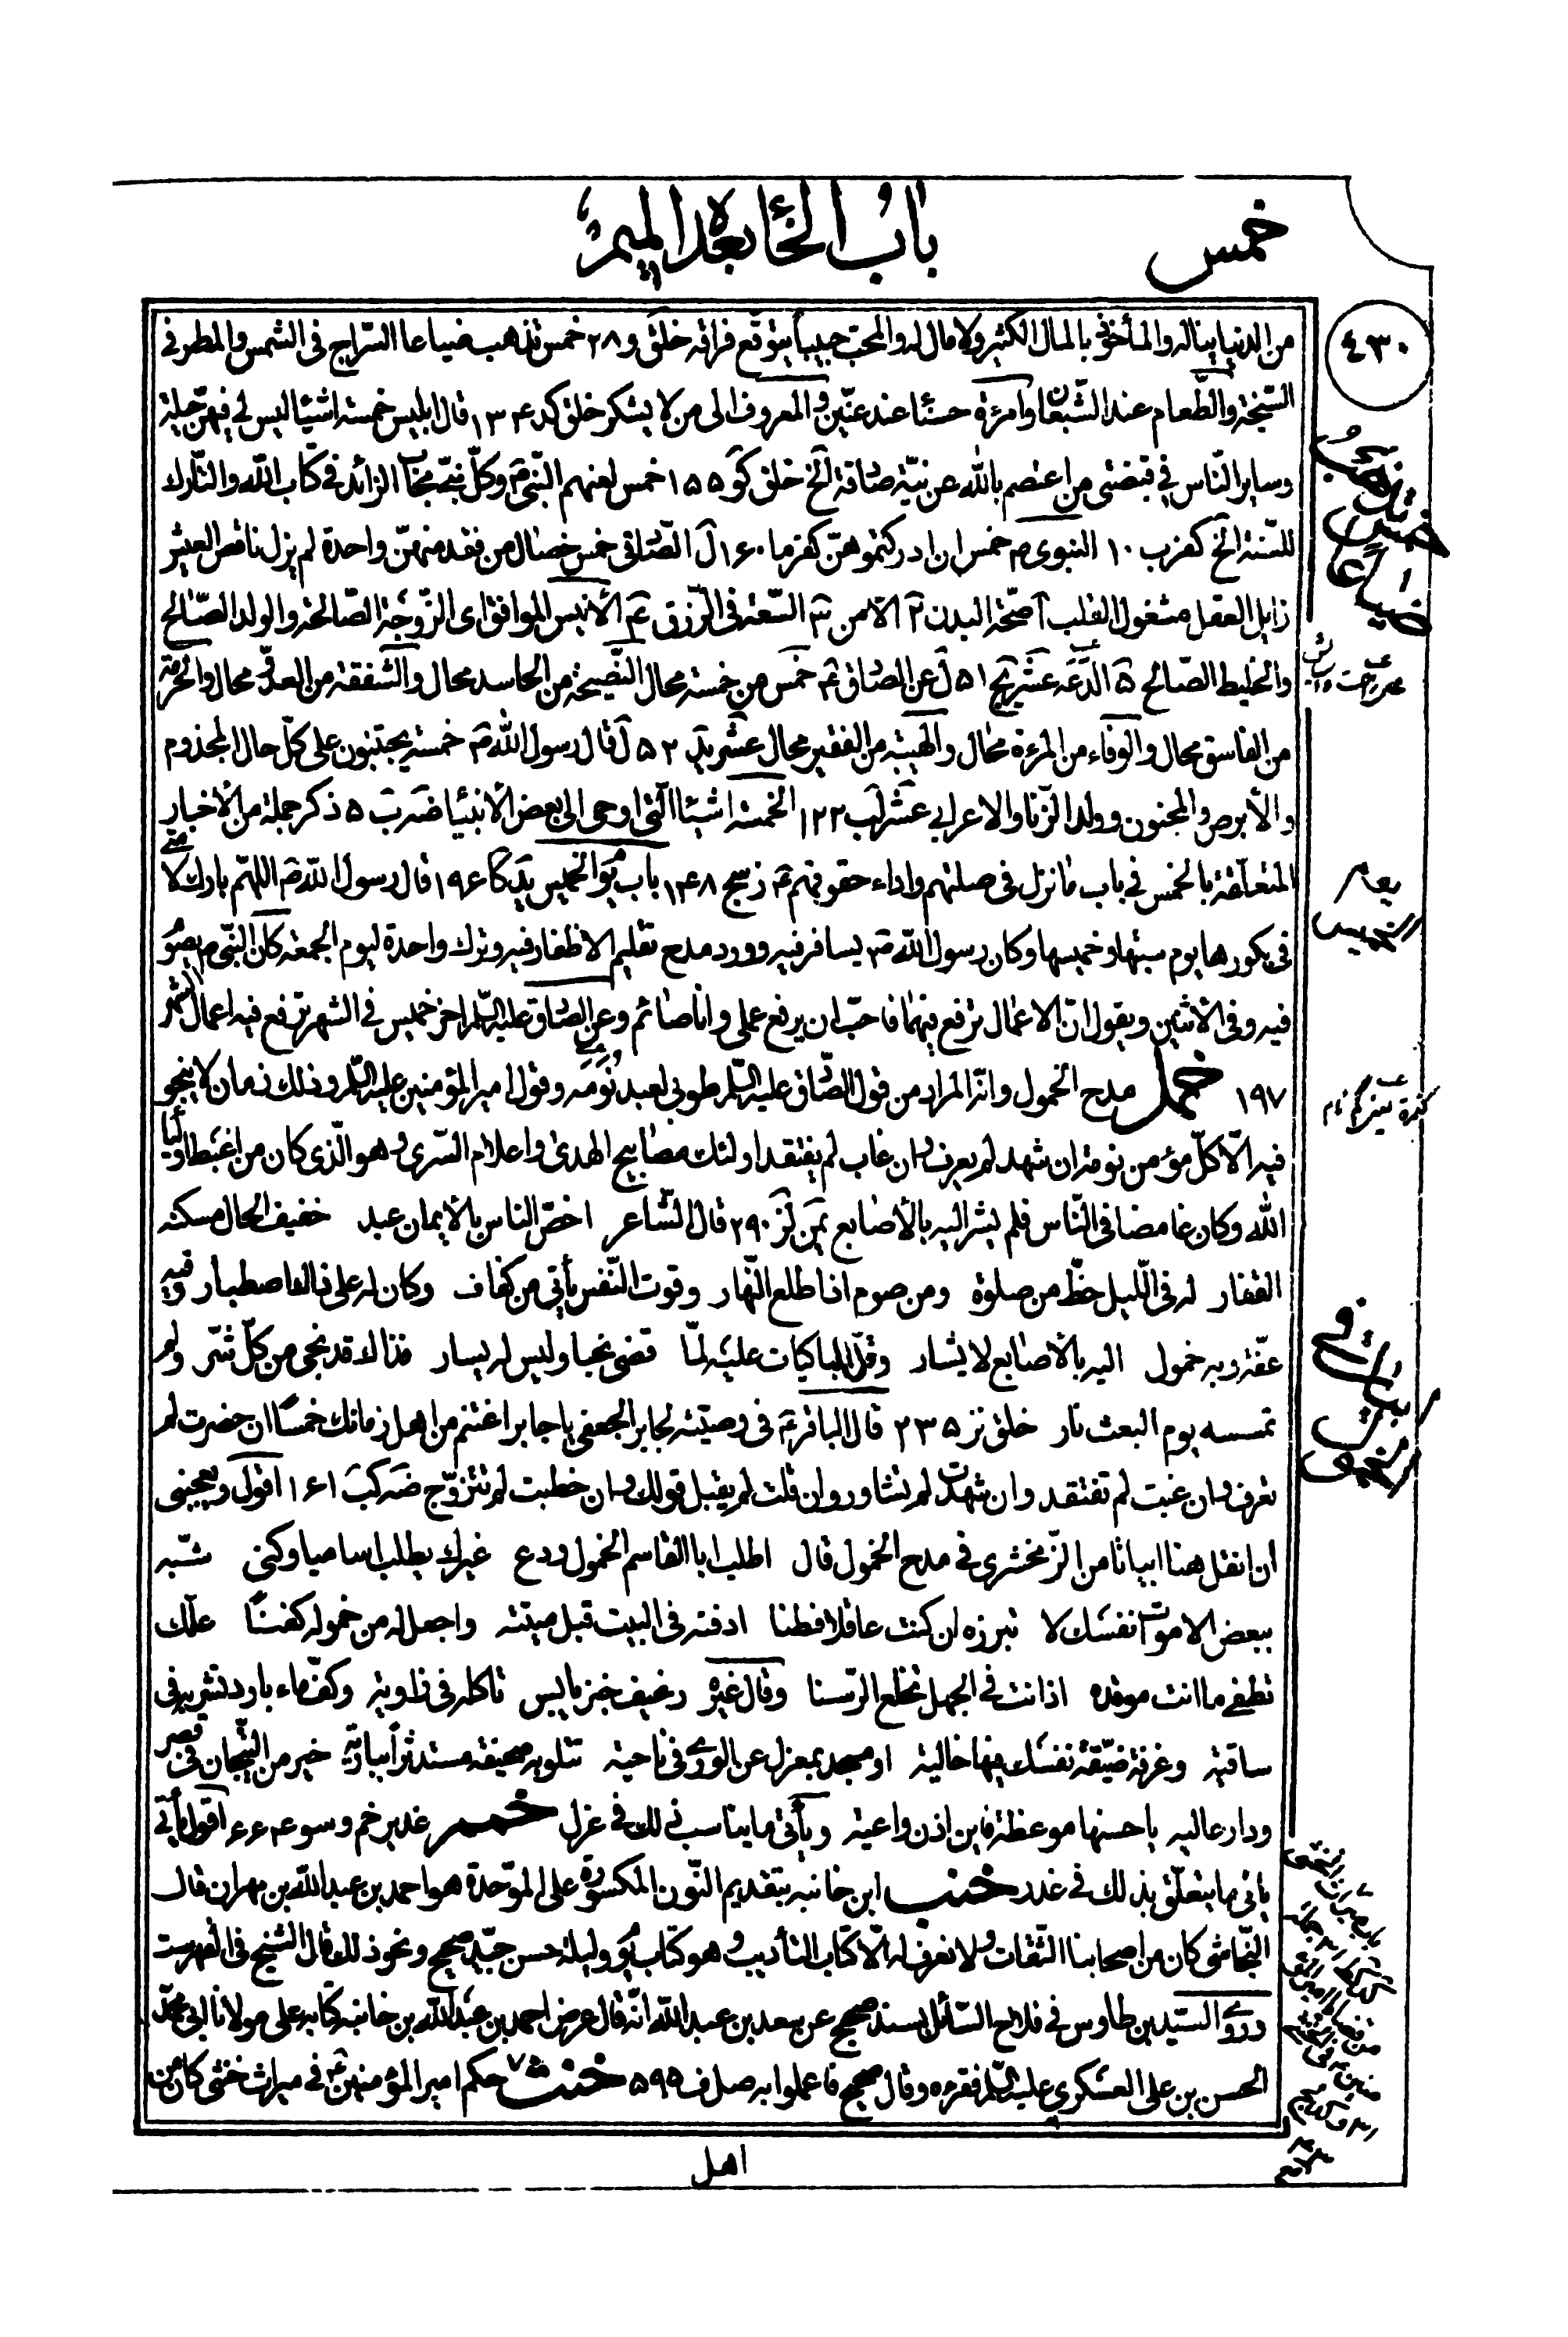 خمس
باب الخاء بعده الميم
٤٣٠
من الدنيا يناله والمأخوذ بالمال الكثير ولا مال له والمحب حبيبا يتوقع فراقه خلق و ٢٨ خمس تذهب ضياعا السراج في الشمس والمطر في
السبخة والطعام عند الشبعان وامرءة حسناء عند عنين والمعروف الى من لا يشكر خلق كد ١٣٤ قال ابليس خمسة اشياء ليس لي فيهن حيلة
وساير الناس في قبضتي من اعتصم بالله عن نية صادقة الخ خلق كو ١٥٥ خمس لعنهم النبي ص وكل نبي مجاب الزائد في كتاب الله والتارك
للسنة الخ كفر ب ١٠ النبوي ص خمس ان ادركتموهن كفر ما ١٦٠ ل الصادقي خمس خصال من فقد منهن واحدة لم يزل ناقص العيش
زايل العقل مشغول القلب ١ صحة البدن ٢ الامن ٣ السعة في الرزق ٤ الأنيس الموافق اى الزوجة الصالحة والولد الصالح
والخليط الصالح ٥ الدعه عشر يج ٥١ ل عن الصادق ع خمس من خمسة محال النصيحة من الحاسد محال والشفقة من العدو محال والحرمة
من الفاسق محال والوفاء من المرءة محال والهيبة من الفقير محال عشر يد ٥٢ ل قال رسول الله ص خمسة يجتنبون على كل حال المجذوم
والأبرص والمجنون وولد الزنا والاعرابي عشر لب ١٢٢ الخمسة اشياء التي اوحى الى بعض الأنبياء ضرب ٥ ذكر جملة من الأخبار
المتعلقة بالخمس في باب ما نزل في صلتهم واداء حقوقهم ع ز سج ١٤٨ باب يوم الخميس يد كا ١٩٦ قال رسول الله ص اللهم بارك لأمتي
في بكورها يوم سبتها وخميسها وكان رسول الله ص يسافر فيه وورد مدح تقليم الاظفار فيه وترك واحدة ليوم الجمعة كان النبي ص يصوم
فيه وفي الاثنين ويقول ان الاعمال ترفع فيهما فاحب ان يرفع عملى وانا صائم وعن الصادق عليه السلم اخر خميس في الشهر ترفع فيه اعمال الشهر
١٩٧ خمل مدح الخمول وانه المراد من قول الصادق عليه السلم طوبى لعبد نومه وقول امير المؤمنين عليه السلم وذلك زمان لا ينجو
فيه الا كل مؤمن نومة ان شهد لم يعرف وان غاب لم يفتقد اولئك مصابيح الهدى واعلام السرى وهو الذى كان من اغبط اولياء
الله وكان غامضا في الناس فلم يشر اليه بالأصابع يمن لز ٢٩٠ قال الشاعر اخص الناس بالأيمان عبد خفيف الحال مسكنه
القفار له في الليل حظ من صلوة ومن صوم اذا طلع النهار وقوت النفس يأتي من كفاف وكان له على ذاك اصطبار وفيه
عفة وبه خمول اليه بالأصابع لا يشار وقل الباكيات عليه لما قضى نحبا وليس له يسار فذاك قد نجى من كل شر ولم
تمسسه يوم البعث نار خلق نز ٢٣٥ قال الباقر ع في وصيته لجابر الجعفي يا جابر اغتنم من اهل زمانك خمسا ان حضرت لم
تعرف وان غبت لم تفتقد وان شهدت لم تشاور وان قلت لم يقبل قولك وان خطبت لم تتزوج ضه كب ١٦١ اقول ويعجبني
ان انقل هنا ابياتا من الزمخشرى في مدح الخمول قال اطلب ابا القاسم الخمول ودع غيرك يطلب اساميا وكنى شبه
ببعض الاموات نفسك لا تبرزه ان كنت عاقلا فطنا ادفنه في البيت قبل ميتته واجعل له من خموله كفنا علك
تطفي ما انت موقده اذ انت في الجهل تخلع الرسنا وقال غيره رغيف خبز يابس تاكله في زاوية وكف ماء بارد تشربه في
ساقية وغرفة ضيقة نفسك فيها خالية او مسجد بمعزل عن الورى في ناحية تتلو به صحيفة مستدثرا ببادية خير من التيجان في قصر
ودار عالية ياحسنها موعظة فاين اذن واعية ويأتي ما يناسب ذلك في عزل خمم غدير خم وسوء ٦٦ اقول يأتي
يأتي ما يتعلق بذلك في غدر خنب ابن خانبه بتقديم النون المكسورة على الموحدة هو احمد بن عبد الله بن مهران قال
النجاشي كان من اصحابنا الثقات ولا نعرف له الا كتاب التأديب وهو كتاب يوم وليلة حسن جيد صحيح ونحو ذلك قال الشيخ في الفهرست
وروى السيد بن طاوس في فلاح السائل بسند صحيح عن سعد بن عبد الله انه قال عرض احمد بن عبد الله بن خانبه كتابه على مولانا ابي محمد
الحسن بن على العسكري عليه السلم فقرءه وقال صحيح فاعملوا به صل ف ٥٩٥ خنث حكم امير المؤمنين ع في ميراث خنثى كان من
خمس تذهب
ضياعا
يوم
الخميس
ابيات في
الخمول
اهل